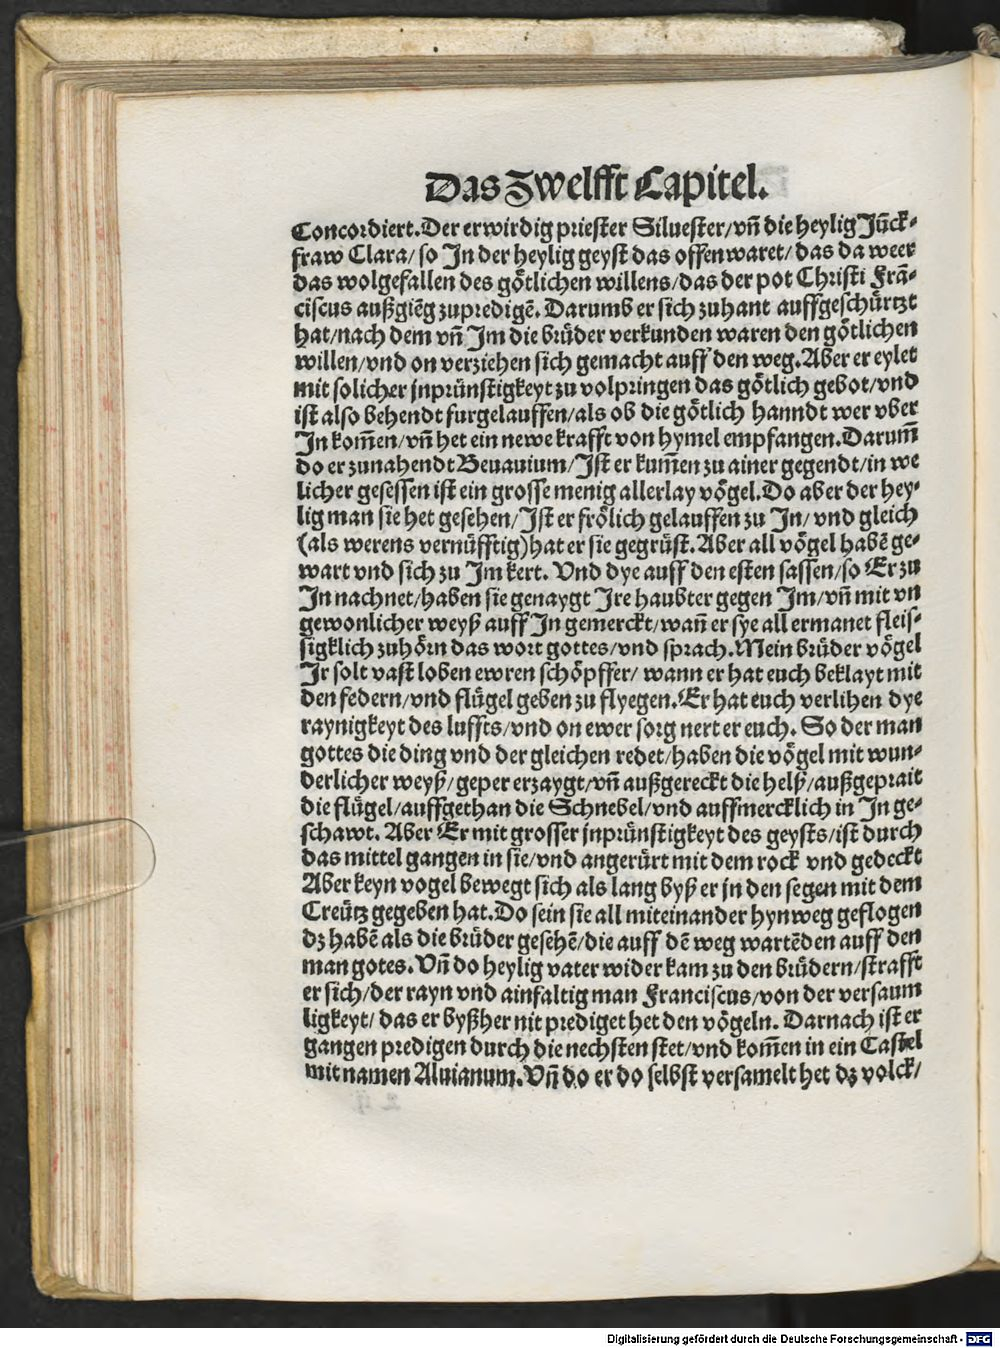 Das Zwelfft Capitel.
Concordiert. Der erwirdig priester Siluester/ vñ die heylig Jūck-
fraw Clara/ so In der heylig geyst das offenwaret/ das da weer
das wolgefallen des götlichen willens/ das der pot Christi Frā-
ciscus außgiēg zupredigē. Darumb er sich zuhant auffgeschürtzt
hat/ nach dem vñ Im die brüder verkunden waren den götlichen
willen/ vnd on verziehen sich gemacht auff den weg. Aber er eylet
mit solicher inprünstigkeyt zu volpringen das götlich gebot/ vnd
ist also behendt furgelauffen/ als ob die götlich hanndt wer vber
In kom̄en/ vñ het ein newe krafft von hymel empfangen. Darum̄
do er zunahendt Beuauium/ Ist er kum̄en zu ainer gegendt/ in we
licher gesessen ist ein grosse menig allerlay vögel. Do aber der hey-
lig man sie het gesehen/ Ist er frölich gelauffen zu In/ vnd gleich
(als werens vernüfftig) hat er sie gegrüst. Aber all vögel habē ge-
wart vnd sich zu Im kert. Vnd dye auff den esten sassen/ so Er zu
In nachnet/ haben sie genaygt Ire haubter gegen Im/ vñ mit vn
gewonlicher weyß auff In gemerckt/ wañ er sye all ermanet fleis-
sigklich zuhörn das wort gottes/ vnd sprach. Mein brüder vögel
Ir solt vast loben ewren schöpffer/ wann er hat euch beklayt mit
den federn/ vnd flügel geben zu flyegen. Er hat euch verlihen dye
raynigkeyt des luffts/ vnd on ewer sorg nert er euch. So der man
gottes die ding vnd der gleichen redet/ haben die vögel mit wun-
derlicher weyß/ geper erzaygt/ vñ außgereckt die helß/ außgeprait
die flügel/ auffgethan die Schnebel/ vnd auffmercklich in In ge-
schawt. Aber Er mit grosser inprünstigkeyt des geysts/ ist durch
das mittel gangen in sie/ vnd angerürt mit dem rock vnd gedeckt
Aber keyn vogel bewegt sich als lang byß er jn den segen mit dem
Creütz gegeben hat. Do sein sie all miteinander hynweg geflogen
dz habē als die brüder gesehē/ die auff dē weg wartēden auff den
man gotes. Vñ do heylig vater wider kam zu den brüdern/ strafft
er sich/ der rayn vnd ainfaltig man Franciscus/ von der versaum
ligkeyt/ das er byßher nit prediget het den vögeln. Darnach ist er
gangen predigen durch die nechsten stet/ vnd kom̄en in ein Castel
mit namen Aluianum. Vñ do er do selbst versamelt het dz volck/
Digitalisierung gefördert durch die Deutsche Forschungsgemeinschaft - DFG